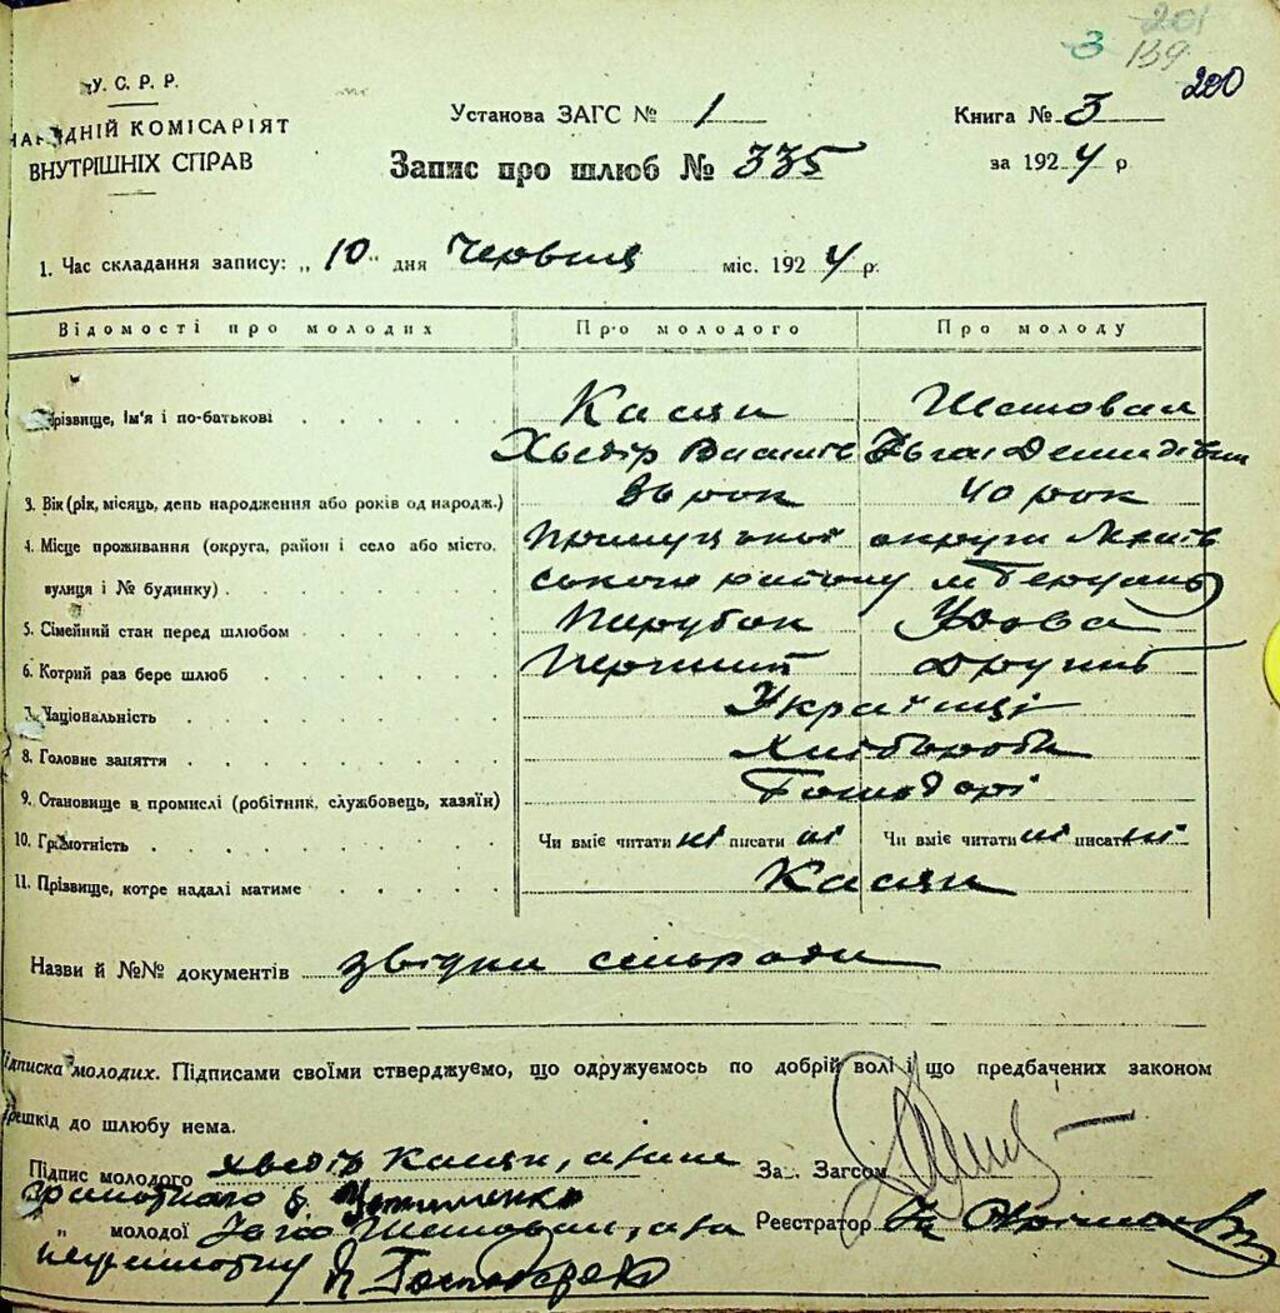 201
3 139 200
У. С. Р. Р.
НАРОДНІЙ КОМІСАРІЯТ
ВНУТРІШНІХ СПРАВ
Установа ЗАГС № 1
Книга № 3
Запис про шлюб № 335
за 1924 р
1. Час складання запису: „ 10 " дня червня міс. 1924 р.
Відомості про молодих Про молодого Про молоду
Прізвище, Ім'я і по-батькові Касян Шаповал
Хведір Василів Ївга Демидівна
3. Вік (рік, місяць, день народження або років од народж.) 36 рок 40 рок
4. Місце проживання (округа, район і село або місто, Прилуцької округи
вулиця і № будинку) ського району
5. Сімейний стан перед шлюбом Парубок Удова
6. Котрий раз бере шлюб Перший другий
7. Національність Українці
8. Головне заняття Хлібороби
9. Становище в промислі (робітник, службовець, хазяїн) Господарі
10. Грамотність Чи вміє читати ні писати ні Чи вміє читати ні писати ні
11. Прізвище, котре надалі матиме Касян
Назви й №№ документів звідки сільради
Підписка молодих. Підписами своїми стверджуємо, що одружуємось по добрій волі і що предбачених законом
перешкід до шлюбу нема.
Підпис молодого Хведір Касян, а за не За.. Загсом
грамотного
„ молодої Шаповал, а за Реєстратор
неграмотну